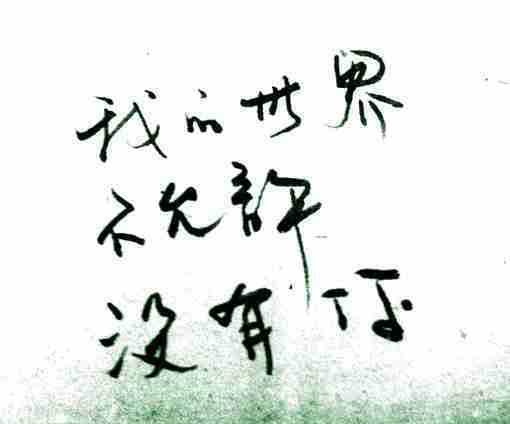 我的世界
不允許
沒有你